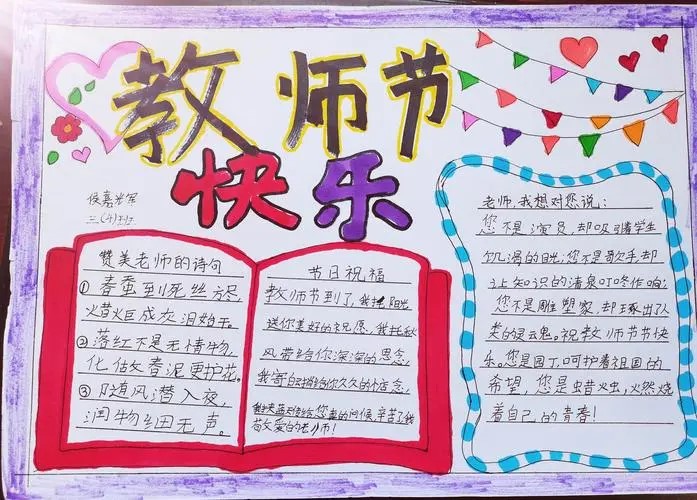 教师节
快乐
三(4)班
赞美老师的诗句
①春蚕到死丝方尽,
蜡炬成灰泪始干。
②落红不是无情物,
化做春泥更护花。
③随风潜入夜
润物细无声。
节日祝福
教师节到了,我托阳光
送你美好的祝愿、我托秋
风带给你深深的思念,
我寄白鸽给你久久的惦念,
给您 的问候,辛苦了我
敬爱的老师!
老师,我想对您说:
您不是演员,却吸引着学生
饥渴的目光;您不是歌手却
让知识的清泉叮咚作响;
您不是雕塑家,却琢出了人
类的灵魂。祝教师节节快
乐。您是园丁,呵护着祖国的
希望,您是蜡烛,燃烧
着自己的青春!